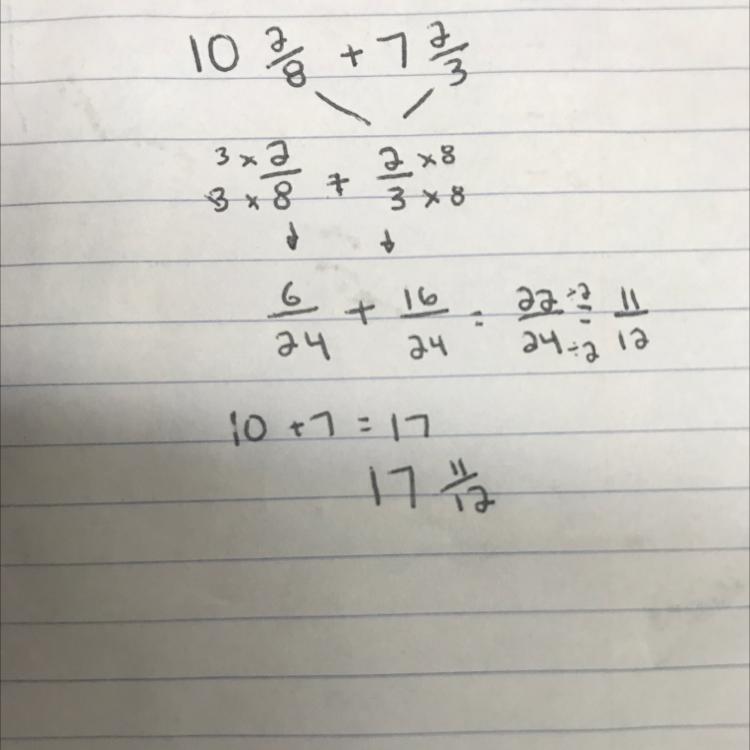 10 2/8 + 7 2/3
3 × 2/3 × 8 + 2 × 8/3 × 8
6/24 + 16/24 = 22 ÷2/24 ÷2 = 11/12
10 + 7 = 17
17 11/12